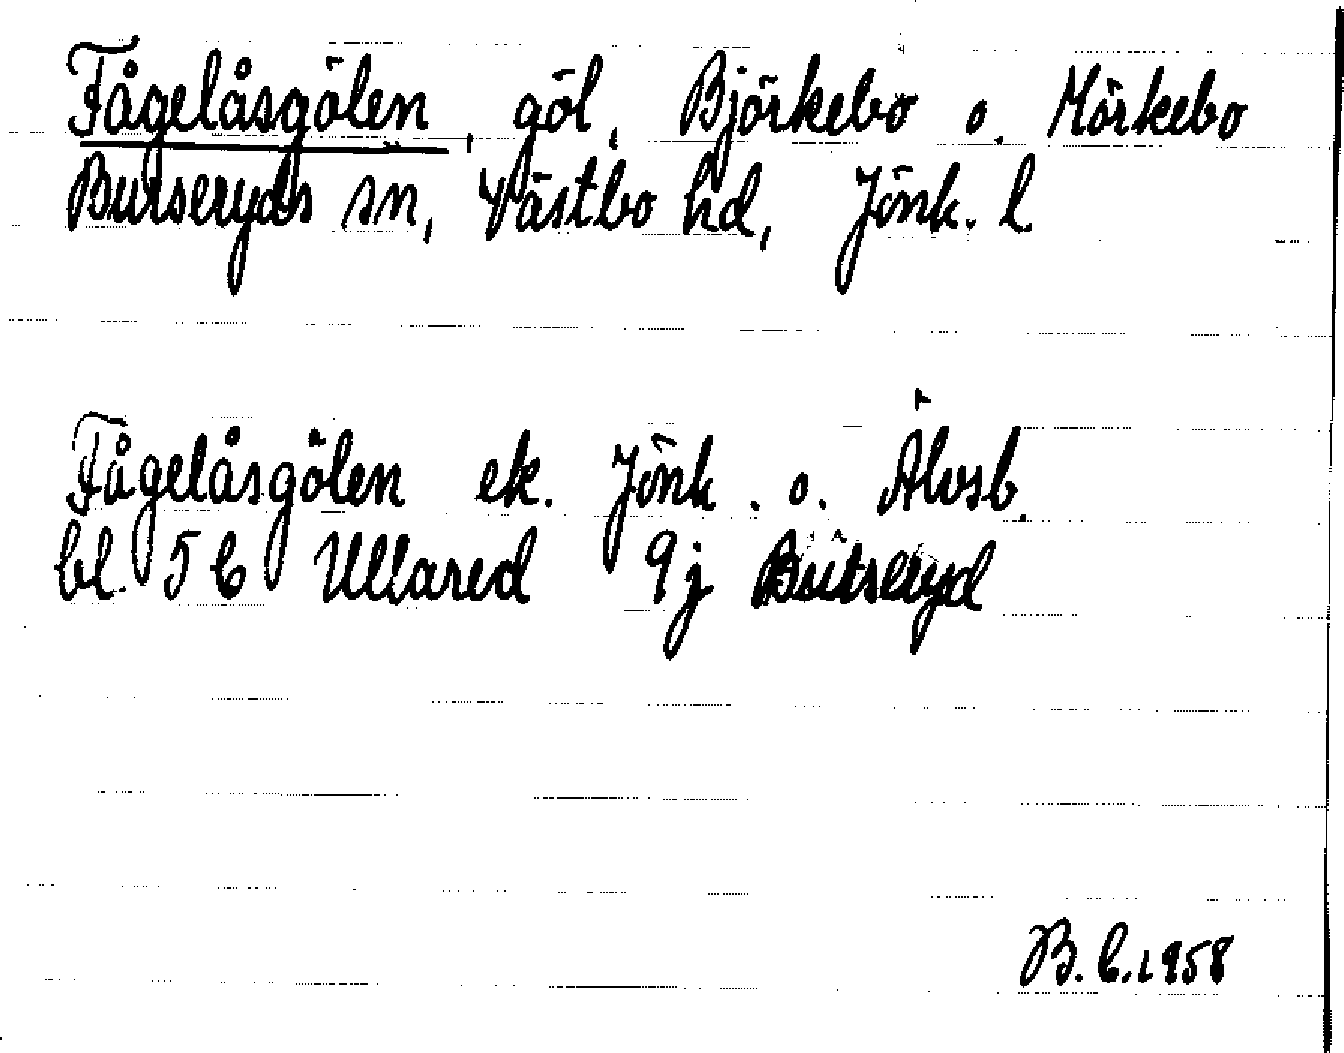 Fågelåsgölen, göl, Björkebo o. Mörkebo
Burseryds sn, Västbo hd, Jönk. l
Fågelåsgölen ek. Jönk. o. Älvsb.
bl. 5 C Ullared 9j Burseryd
B. C. 1958